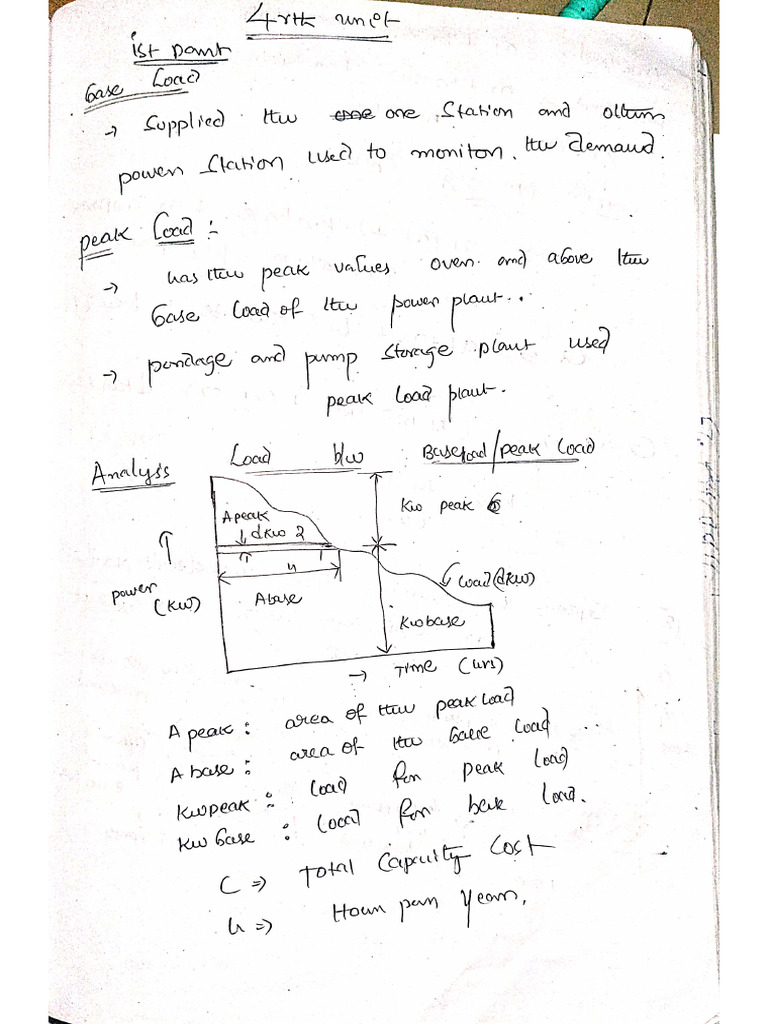 4rth unit
ist part
Base Load
→ Supplied the one station and others
power station used to monitor the demand.
peak Load :-
→ has the peak values over and above the
base load of the power plant..
→ pondage and pump storage plant used
peak load plant.
Analysis Load b/w Baseload/peak load
A peak
Kw peak
dKw
↑
h
power
(Kw)
A base
Load (dKw)
Kwbase
→ Time (hrs)
A peak : area of the peak load
A base : area of the base load
Kwpeak : load for peak load
Kw base : load for base load.
C => Total Capacity Cost
h => Hour per Years.